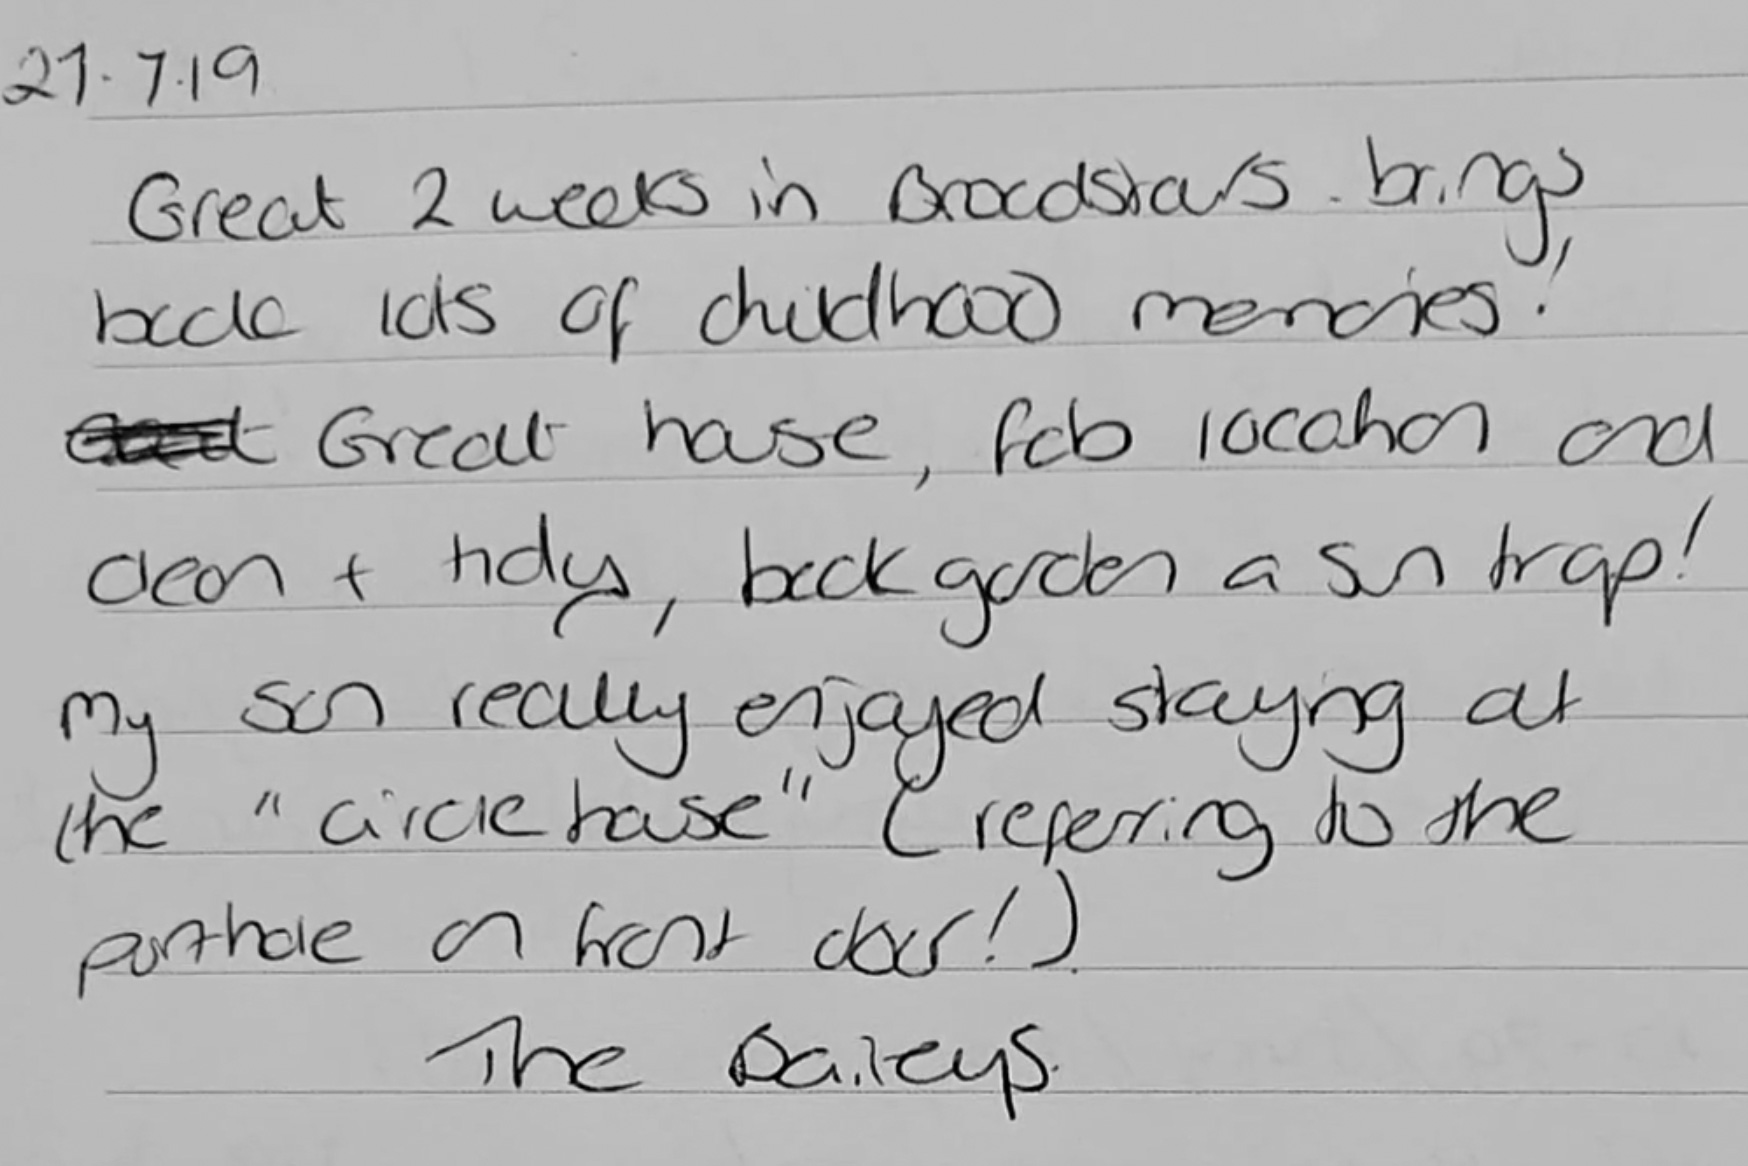 27.7.19
Great 2 weeks in Broadstairs. brings
back lots of childhood memories!
Great house, fab location and
clean + tidy, back garden a sun trap!
My son really enjoyed staying at
the "circle house" (referring to the
porthole on front door!)
The Baileys.